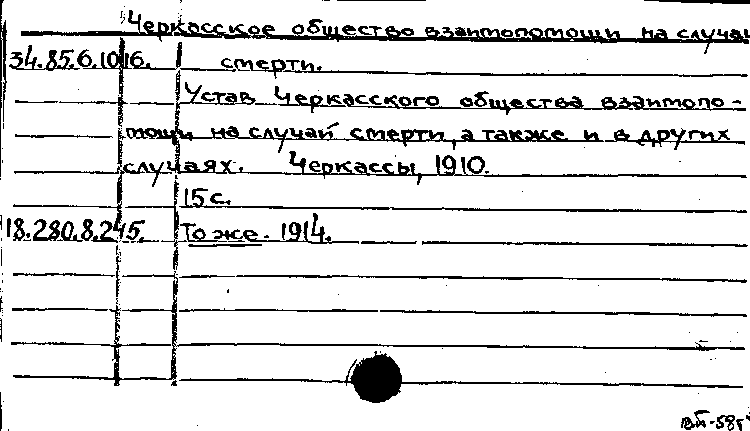 Черкасское общество взаимопомощи на случай
34.85.6.1016. смерти.
Устав Черкасского общества взаимопо-
мощи на случай смерти, а также и в других
случаях. Черкассы, 1910.
15 с.
18.280.8.245. То же. 1914.